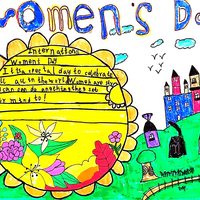 women's Da
Internationa
Women's Day
It the special day to celebrate
all in the world Women are
can do anything they set
mind to!